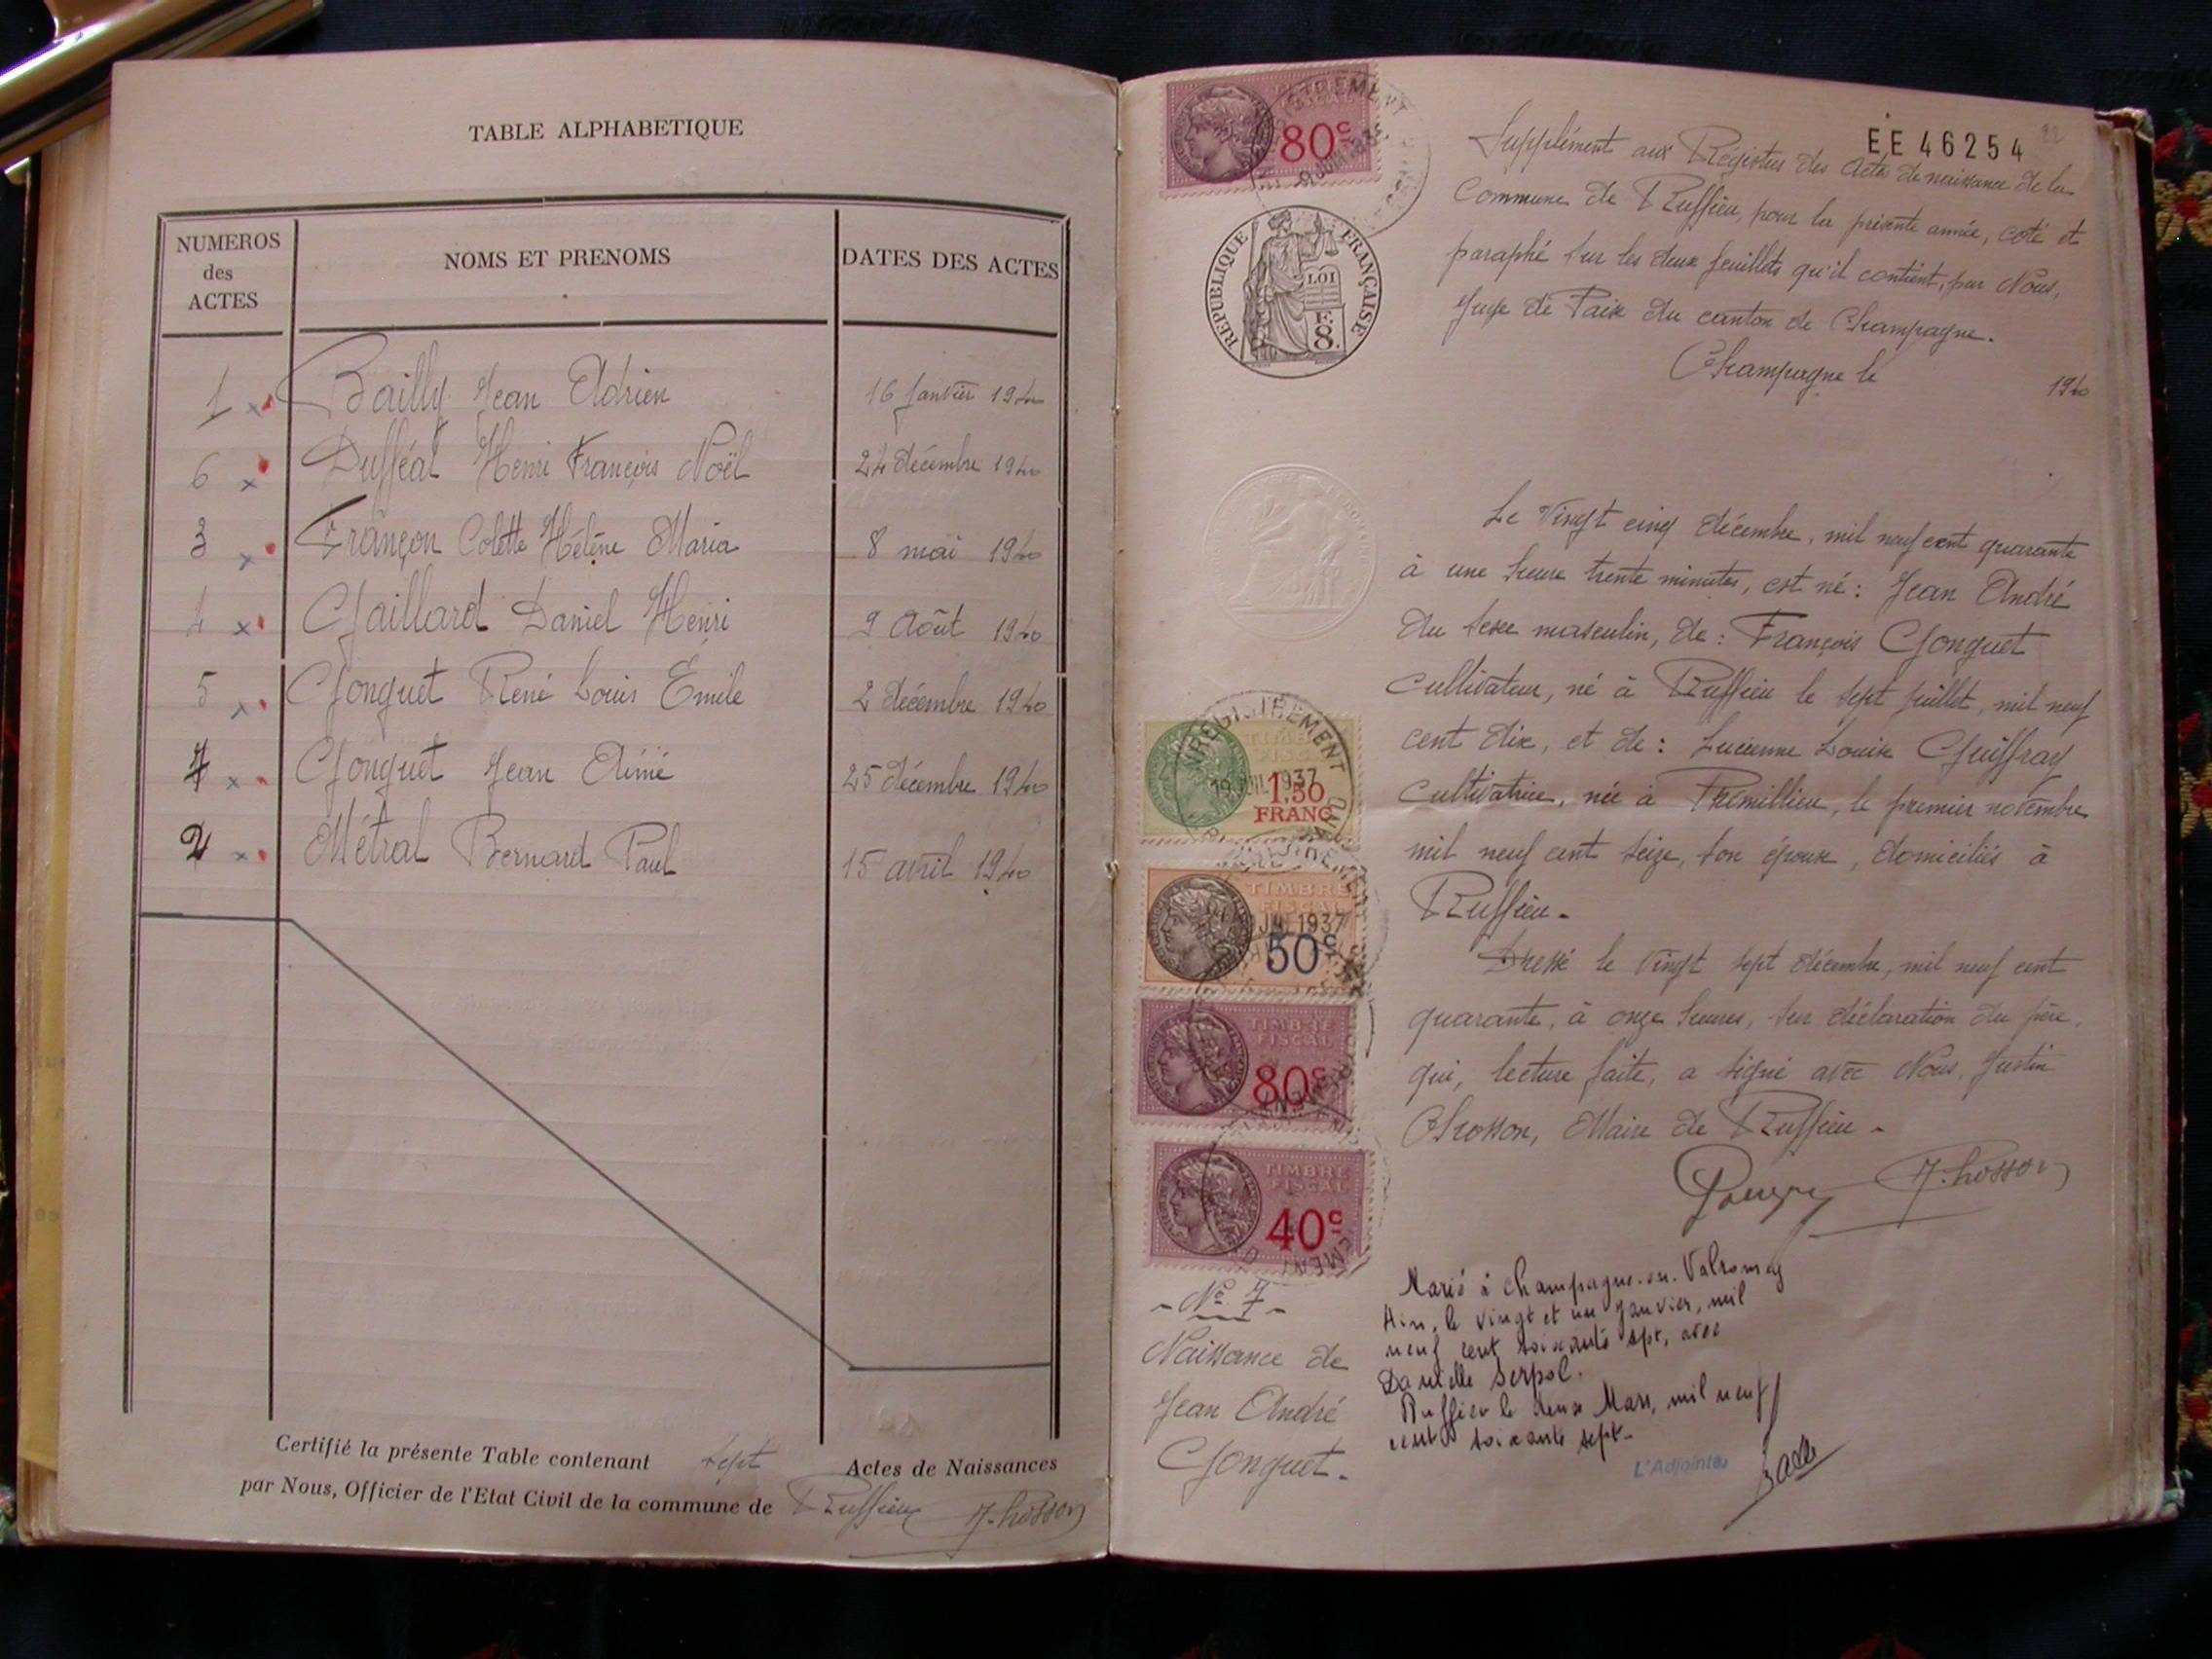 TABLE ALPHABETIQUE
NUMEROS des ACTES
NOMS ET PRENOMS
DATES DES ACTES
1 Bailly Jean Adrien 16 Janvier 1940
6 Dufféal Henri François Noël 24 décembre 1940
3 Françon Colette Hélène Maria 8 mai 1940
4 Gaillard Daniel Henri 9 Août 1940
5 Gonguet René Louis Emile 2 décembre 1940
7 Gonguet Jean Aimé 25 décembre 1940
2 Métral Bernard Paul 15 avril 1940
Certifié la présente Table contenant sept Actes de Naissances
par Nous, Officier de l'Etat Civil de la commune de Ruffieu J. Chosson
80c
EE 46254 22
Supplément aux Régistres des Actes de naissance de la
Commune de Ruffieu, pour la présente année, coté et
paraphé sur les deux feuillets qu'il contient, par Nous,
Juge de Paix du canton de Champagne.
Champagne le 1940
REPUBLIQUE FRANÇAISE
LOI
F.
8.
Le Vingt cinq décembre, mil neuf cent quarante
à une heure trente minutes, est né : Jean André
du sexe masculin, de : François Gonguet
Cultivateur, né à Ruffieu le sept juillet, mil neuf
cent dix, et de : Lucienne Louise Guiffray
Cultivatrice, née à Prémillieu, le premier novembre
mil neuf cent seize, son épouse, domiciliés à
Ruffieu.
Dressé le Vingt sept décembre, mil neuf cent
quarante, à onze heures, sur déclaration du père,
qui, lecture faite, a signé avec Nous, Justin
Chosson, Maire de Ruffieu.
J. Chosson
ENREGISTREMENT
19 JUIL 1937
1,50
FRANC
TIMBRE
FISCAL
JUIL 1937
50c
TIMBRE
FISCAL
80c
TIMBRE
FISCAL
40c
N° 7
Naissance de
Jean André
Gonguet.
Marié à Champagne-en-Valromey
Ain, le vingt et un Janvier, mil
neuf cent soixante sept, avec
Danielle Serpol.
Ruffieu le deux Mars, mil neuf
cent soixante sept.
L'Adjoint